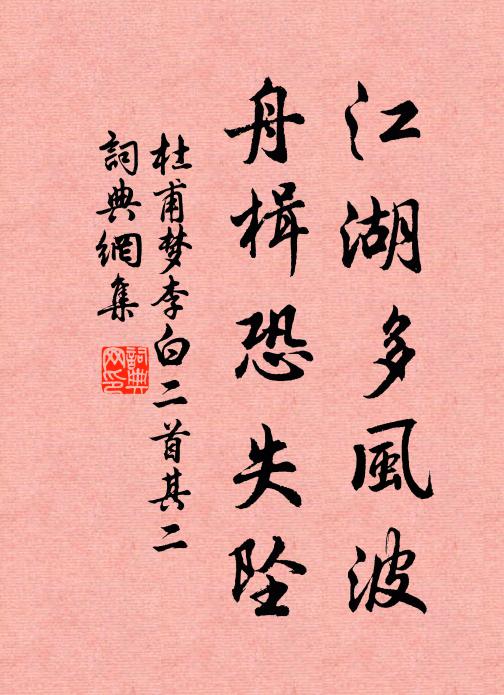 江湖多風波
舟楫恐失墜
杜甫梦李白二首其二
詞典網集
詞典网印